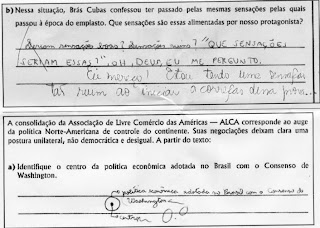 b) Nessa situação, Brás Cubas confessou ter passado pelas mesmas sensações pelas quais
passou a época do emplasto. Que sensações são essas alimentadas por nosso protagonista?
Seriam sensações boas? Sensações ruins? "QUE SENSAÇÕES
SERIAM ESSAS?" "OH, DEUS, EU ME PERGUNTO.
Eu mereço! Estou tendo uma sensação
tão ruim ao iniciar a correção dessa prova...
A consolidação da Associação de Livre Comércio das Américas — ALCA corresponde ao auge
da política Norte-Americana de controle do continente. Suas negociações deixam clara uma
postura unilateral, não democrática e desigual. A partir do texto:
a) Identifique o centro da política econômica adotada no Brasil com o Consenso de
Washington.
a política econômica adotada no Brasil com o Consenso de
Washington
centro O.O